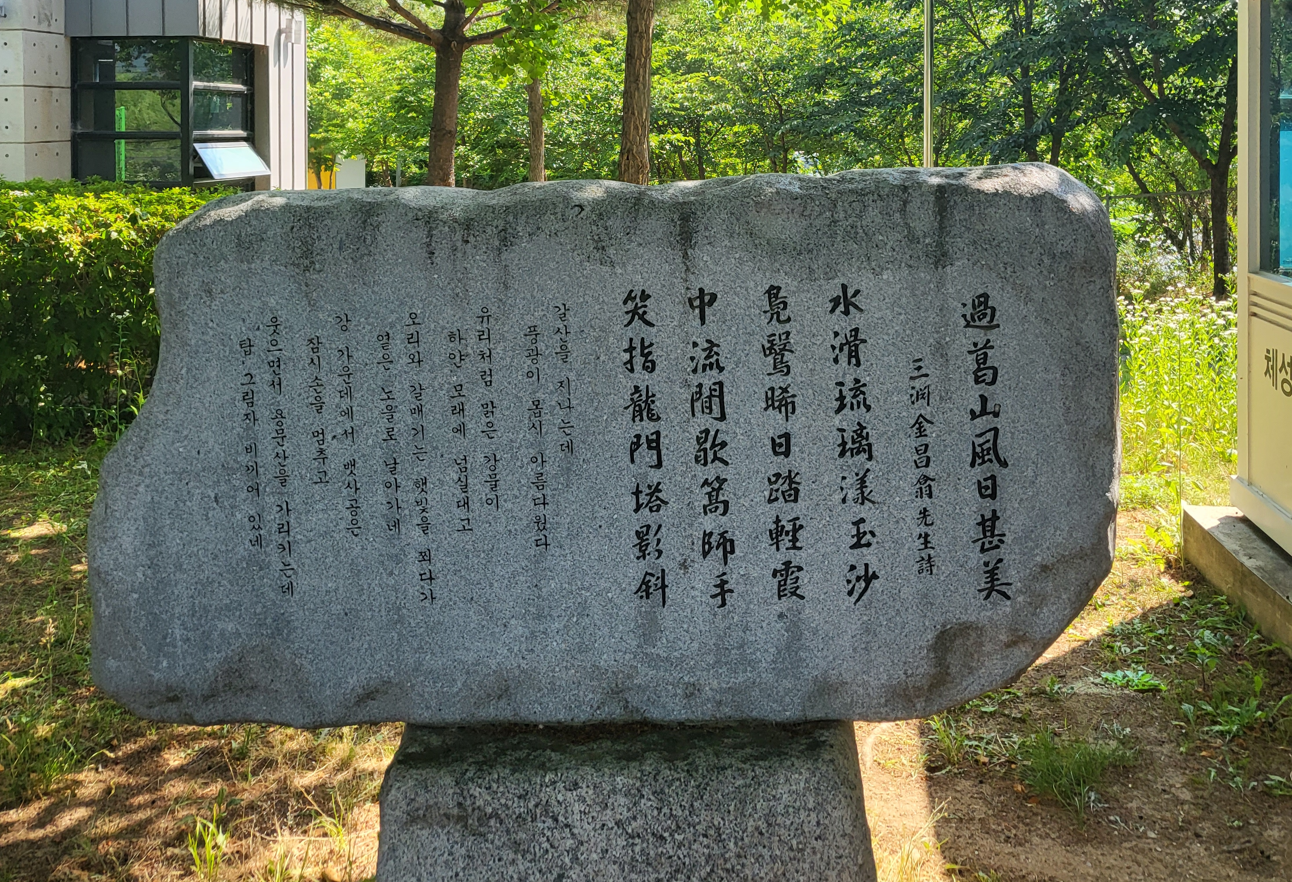 過葛山風日甚美
三渊金昌翕先生詩
水滑琉璃漾玉沙
鳧鷖晞日踏輕霞
中流閒歇篙師手
笑指龍門塔影斜
갈산을 지나는데
풍광이 몹시 아름다웠다
유리처럼 맑은 강물이
하얀 모래에 넘실대고
오리와 갈매기는 햇빛을 쬐다가
옅은 노을로 날아가네
강 가운데에서 뱃사공은
잠시 손을 멈추고
웃으면서 용문산을 가리키는데
탑 그림자 비끼어 있네
체성